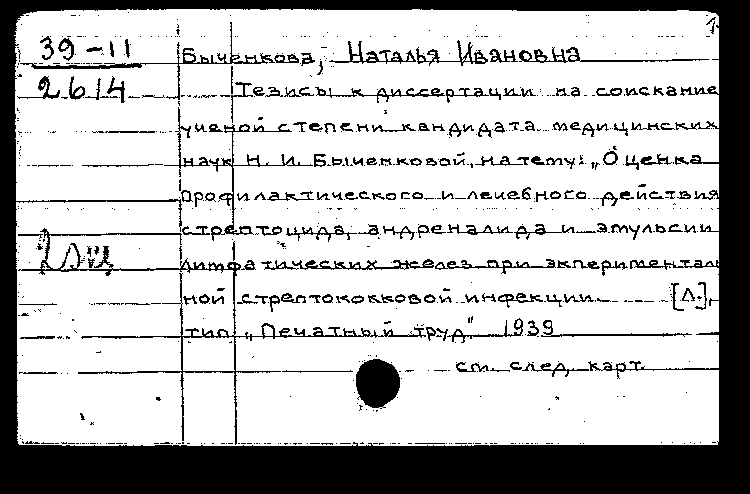 39-11
2614
Быченкова, Наталья Ивановна
Тезисы к диссертации на соискание
ученой степени кандидата медицинских
наук Н. И. Быченковой, на тему: „Оценка
профилактического и лечебного действия
стрептоцида, андреналида и эмульсии
лимфатических желез при эксперименталь
ной стрептококковой инфекции. [Л.],
тип. „Печатный труд" 1939
см. след. карт.